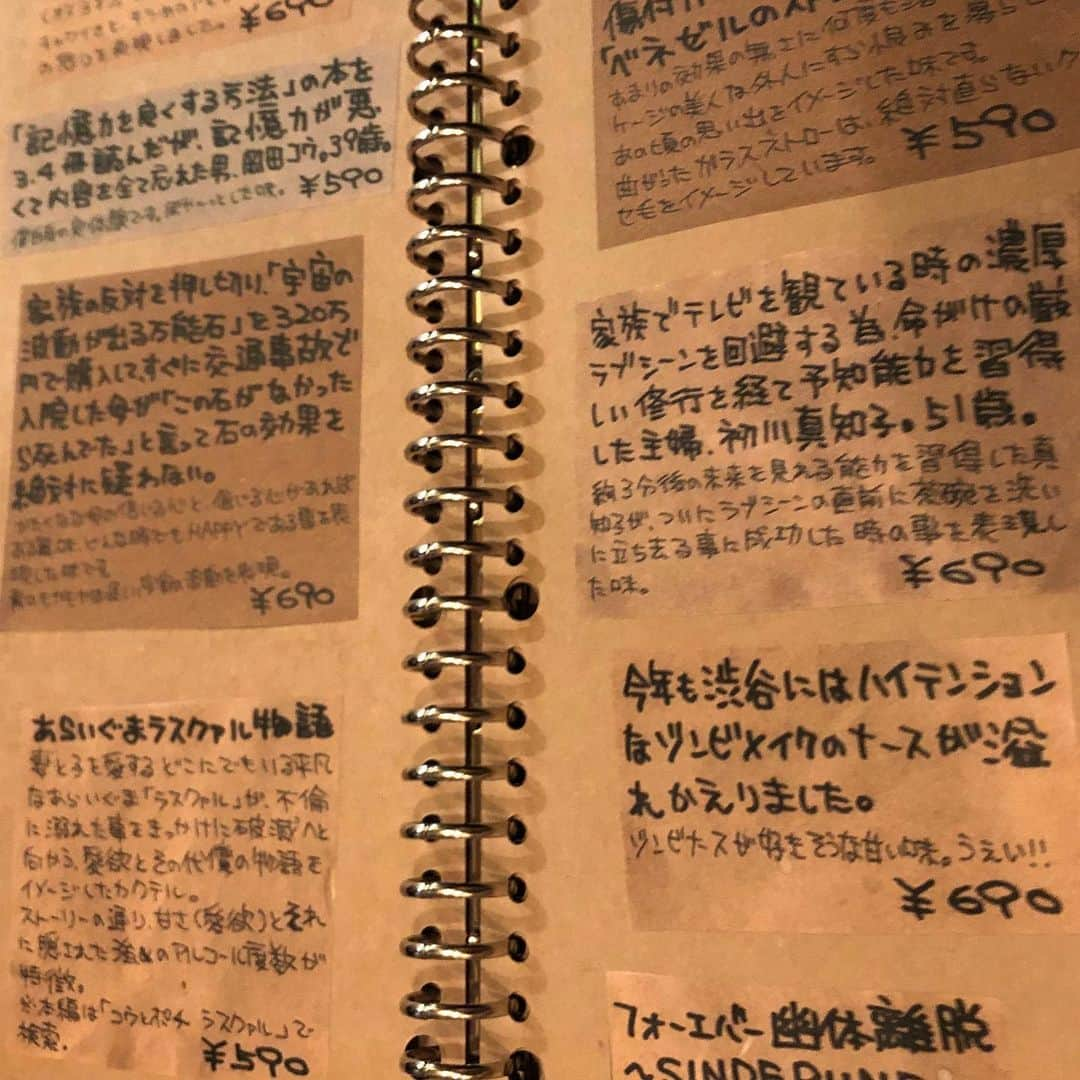 ¥690
の思りを表現しました。
「記憶力を良くする方法」の本を
3.4冊読んだが、記憶力が悪
くて内容を全て忘れた男、岡田コウ。39歳。
¥590
家族の反対を押し切り、「宇宙の
波動が出る万能石」を320万
円で購入して、すぐに交通事故で
入院した母が「この石がなかった
ら死んでた」と言って石の効果を
絶対に疑わない。
¥690
あらいぐまラスクァル物語
妻と子を愛するどこにでもいる平凡
なあらいぐま「ラスクァル」が、不倫
に溺れた事をきっかけに破滅へと
向かう、愛欲とその代償の物語を
イメージしたカクテル。
ストーリーの通り、甘さ(愛欲)とそれ
に隠された強めのアルコール度数が
特徴。
※本編は「コウとポチ ラスクァル」で
検索。
¥590
「ベネゼルのスト
あまりの効果の無さに何度も
ケージの美人な外人にすら恨みを募らせ
あの頃の思い出をイメージした味です。
曲がったガラスストローは、絶対直らないク
セ毛をイメージしています。
¥590
家族でテレビを観ている時の濃厚
ラブシーンを回避する為、命がけの厳
しい修行を経て予知能力を習得
した主婦、初川真知子。51歳。
約3分後の未来を見える能力を習得した真
知子が、ついにラブシーンの直前に茶碗を洗い
に立ち去る事に成功した時の事を表現し
た味。
¥690
今年も渋谷にはハイテンション
なゾンビメイクのナースが溢
れかえりました。
ゾンビナースが好きそうな甘い味。うぇい!!
¥690
フォーエバー幽体離脱